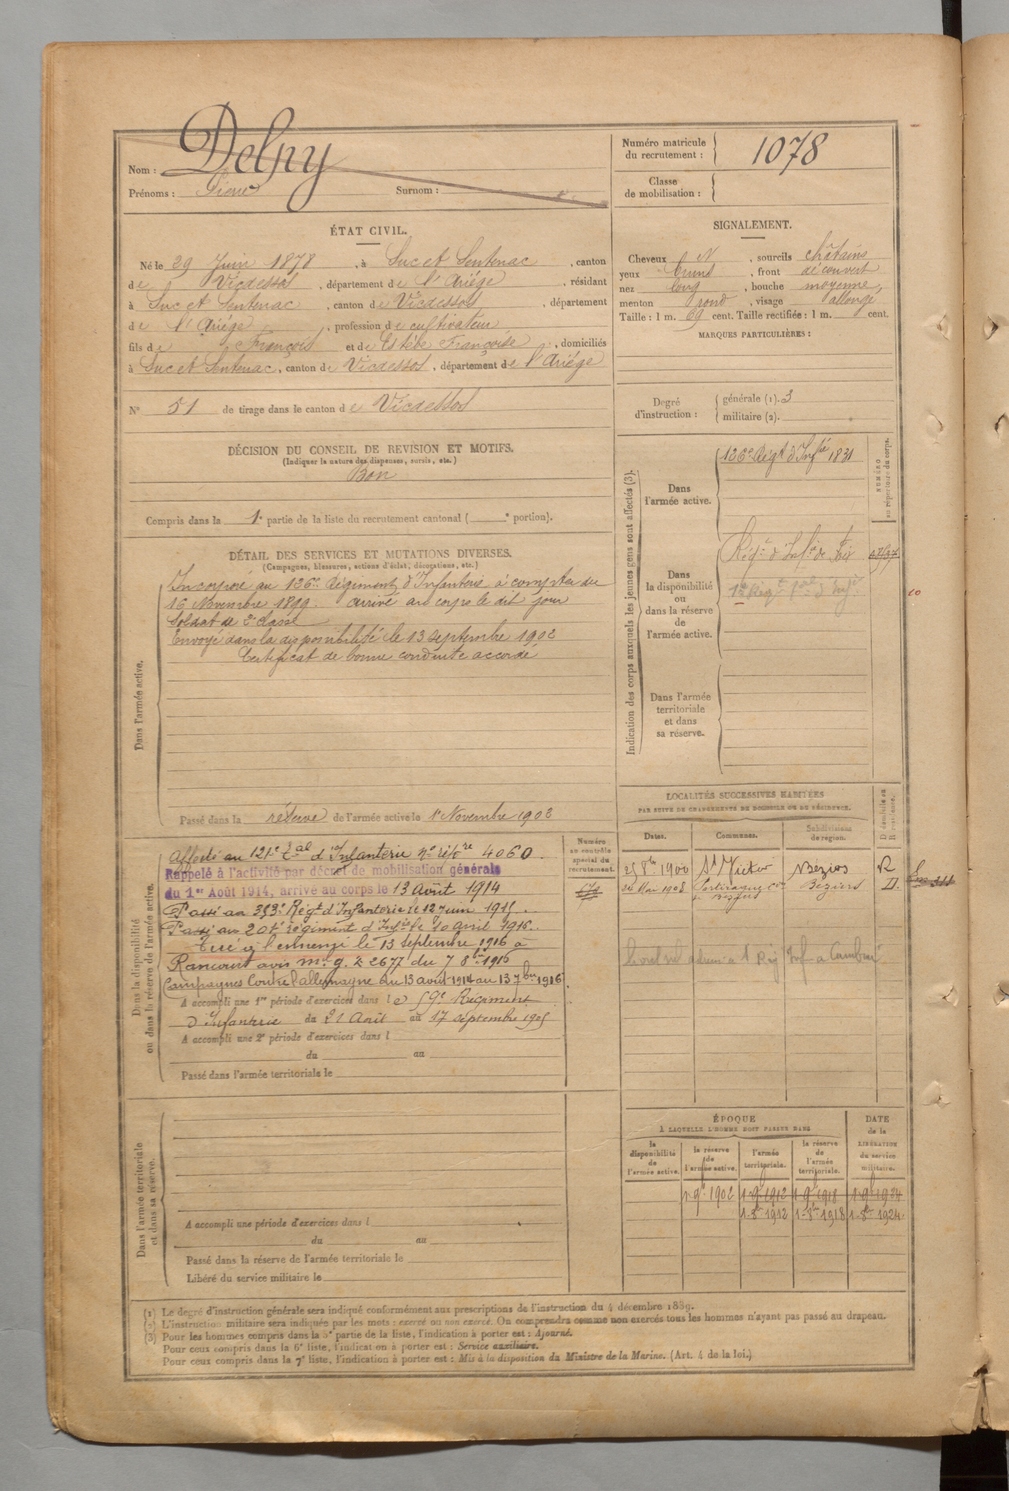 Nom : Delpy
Prénoms : Pierre Surnom :
Numéro matricule du recrutement : 1078
Classe de mobilisation :
ÉTAT CIVIL.
Né le 29 Juin 1878, à Suc et Sentenac, canton
de Vicdessos, département de l'Ariège, résidant
à Suc et Sentenac, canton de Vicdessos, département
de l'Ariège, profession de cultivateur
fils de François et de Estibe Françoise, domiciliés
à Suc et Sentenac, canton de Vicdessos, département de l'Ariège
N° 51 de tirage dans le canton de Vicdessos
SIGNALEMENT.
Cheveux N, sourcils châtains
yeux bruns, front découvert
nez long, bouche moyenne,
menton rond, visage allongé
Taille : 1 m. 69 cent. Taille rectifiée : 1 m. cent.
MARQUES PARTICULIÈRES :
Degré d'instruction : générale (1). 3
militaire (2).
DÉCISION DU CONSEIL DE REVISION ET MOTIFS.
(Indiquer la nature des dispenses, sursis, etc.)
Bon
Compris dans la 1e partie de la liste du recrutement cantonal ( e portion).
DÉTAIL DES SERVICES ET MUTATIONS DIVERSES.
(Campagnes, blessures, actions d'éclat, décorations, etc.)
Dans l'armée active.
Incorporé au 126e Régiment d'Infanterie à compter du
16 Novembre 1899. arrivé au corps le dit jour
Soldat de 2e classe
Envoyé dans la disponibilité le 13 septembre 1902
Certificat de bonne conduite accordé
Passé dans la réserve de l'armée active le 1er Novembre 1902
Indication des corps auxquels les jeunes gens sont affectés (3).
NUMÉRO au répertoire du corps.
Dans l'armée active.
126e Régt d'Infie 1831
Dans la disponibilité ou dans la réserve de l'armée active.
Dans l'armée territoriale et dans sa réserve.
Dans la disponibilité ou dans la réserve de l'armée active.
Numéro au contrôle spécial du recrutement.
Affecté au 121e d'Infanterie 4060.
Rappelé à l'activité par décret de mobilisation générale
du 1er Août 1914, arrivé au corps le 13 Avril 1914
Passé au 353e Régt d'Infanterie le 12 juin 1915.
Passé au régiment d'Infie le 10 avril 1916.
Tué à l'ennemi le 13 septembre 1916 à
Rancourt avis m. g. 2677 du 7 8bre 1916
Campagnes Contre l'allemagne du 13 août 1914 au 13 7bre 1916
A accompli une 1re période d'exercices dans le 59e Régiment
d'Infanterie du 21 Août au 17 septembre 1905
A accompli une 2e période d'exercices dans l
du au
Passé dans l'armée territoriale le
LOCALITÉS SUCCESSIVES HABITÉES
PAR SUITE DE CHANGEMENTS DE DOMICILE OU DE RÉSIDENCE.
Dates. Communes. Subdivisions de région. D domicile ou R résidence.
1900 St Victor Béziers R
1908 Portiragnes Béziers D.
ÉPOQUE
À LAQUELLE L'HOMME DOIT PASSER DANS
la disponibilité de l'armée active. la réserve de l'armée active. l'armée territoriale. la réserve de l'armée territoriale. DATE de la LIBÉRATION du service militaire.
1-9e 1902 1-9e 1912 1-9e 1918 1-9e 1924
1-8e 1912 1-8e 1918 1-8e 1924
Dans l'armée territoriale et dans sa réserve.
A accompli une période d'exercices dans l
du au
Passé dans la réserve de l'armée territoriale le
Libéré du service militaire le
(1) Le degré d'instruction générale sera indiqué conformément aux prescriptions de l'instruction du 4 décembre 1889.
(2) L'instruction militaire sera indiquée par les mots : exercé ou non exercé. On comprendra comme non exercés tous les hommes n'ayant pas passé au drapeau.
(3) Pour les hommes compris dans la 5e partie de la liste, l'indication à porter est : Ajourné.
Pour ceux compris dans la 6e liste, l'indication à porter est : Service auxiliaire.
Pour ceux compris dans la 7e liste, l'indication à porter est : Mis à la disposition du Ministre de la Marine. (Art. 4 de la loi.)